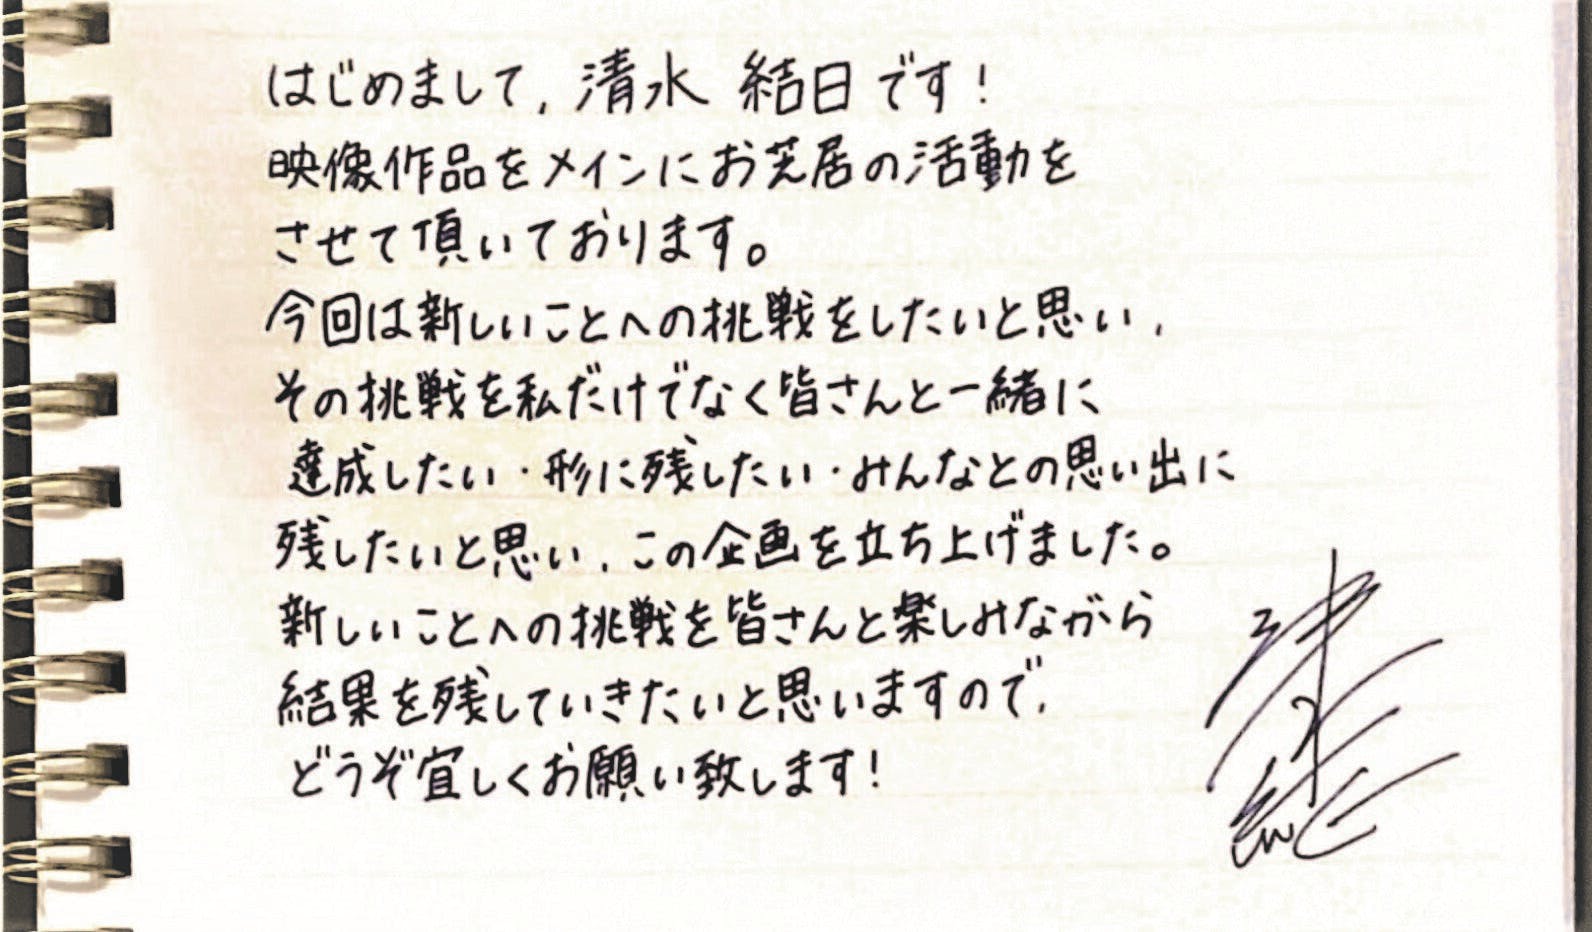 はじめまして、清水 結日です!
映像作品をメインにお芝居の活動を
させて頂いております。
今回は新しいことへの挑戦をしたいと思い、
その挑戦を私だけでなく皆さんと一緒に
達成したい・形に残したい・みんなとの思い出に
残したいと思い、この企画を立ち上げました。
新しいことへの挑戦を皆さんと楽しみながら
結果を残していきたいと思いますので、
どうぞ宜しくお願い致します!